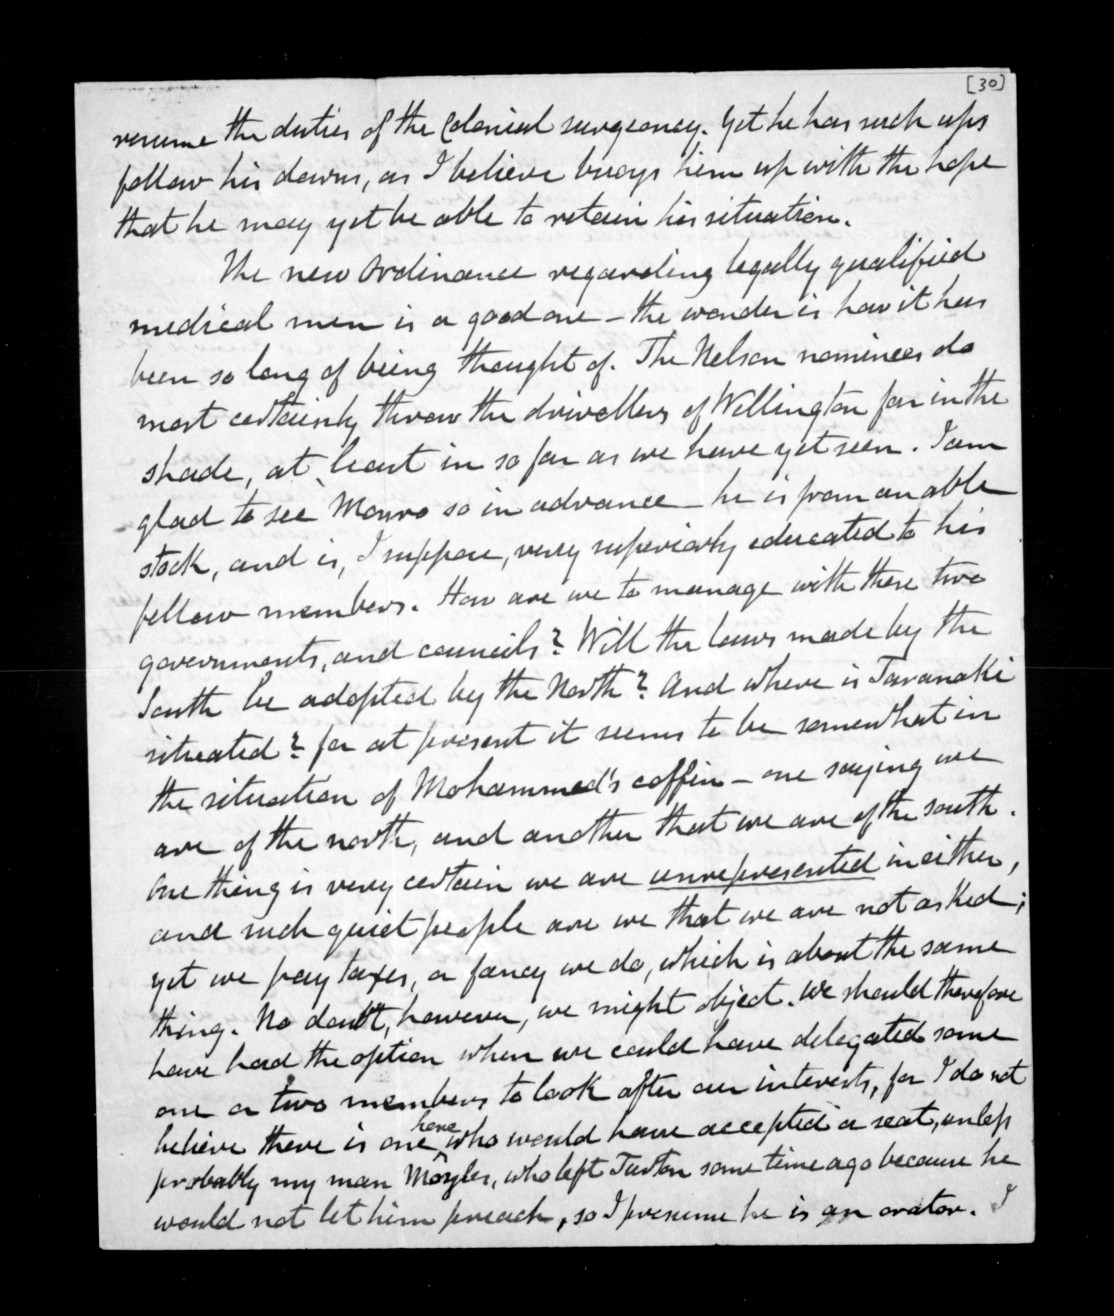 [30]
resume the duties of the Colonial surgeoncy. Yet he has such ups
follow his downs, as I believe buoys him up with the hope
that he may yet be able to retain his situation.
The new Ordinance regarding legally qualified
medical men is a good one – the wonder is how it has
been so long of being thought of. The Nelson nominees do
most certainly throw the drivellers of Wellington far in the
shade, at least in so far as we have yet seen. I am
glad to see Monro so in advance – he is from an able
stock, and is, I suppose, very superiorly educated to his
fellow members. How are we to manage with these two
governments, and councils? Will the laws made by the
South be adopted by the North? And where is Taranaki
situated? for at present it seems to be somewhat in
the situation of Mohammed's coffin – one saying we
are of the north, and another that we are of the south.
One thing is very certain we are unrepresented in either,
and such quiet people are we that we are not asked;
yet we pay taxes, or fancy we do, which is about the same
thing. No doubt, however, we might object. We should therefore
have had the option when we could have delegated some
one or two members to look after our interests, for I do not
believe there is one here who would have accepted a seat, unless
probably my man Moyles, who left Turton some time ago because he
would not let him preach, so I presume he is an orator. I